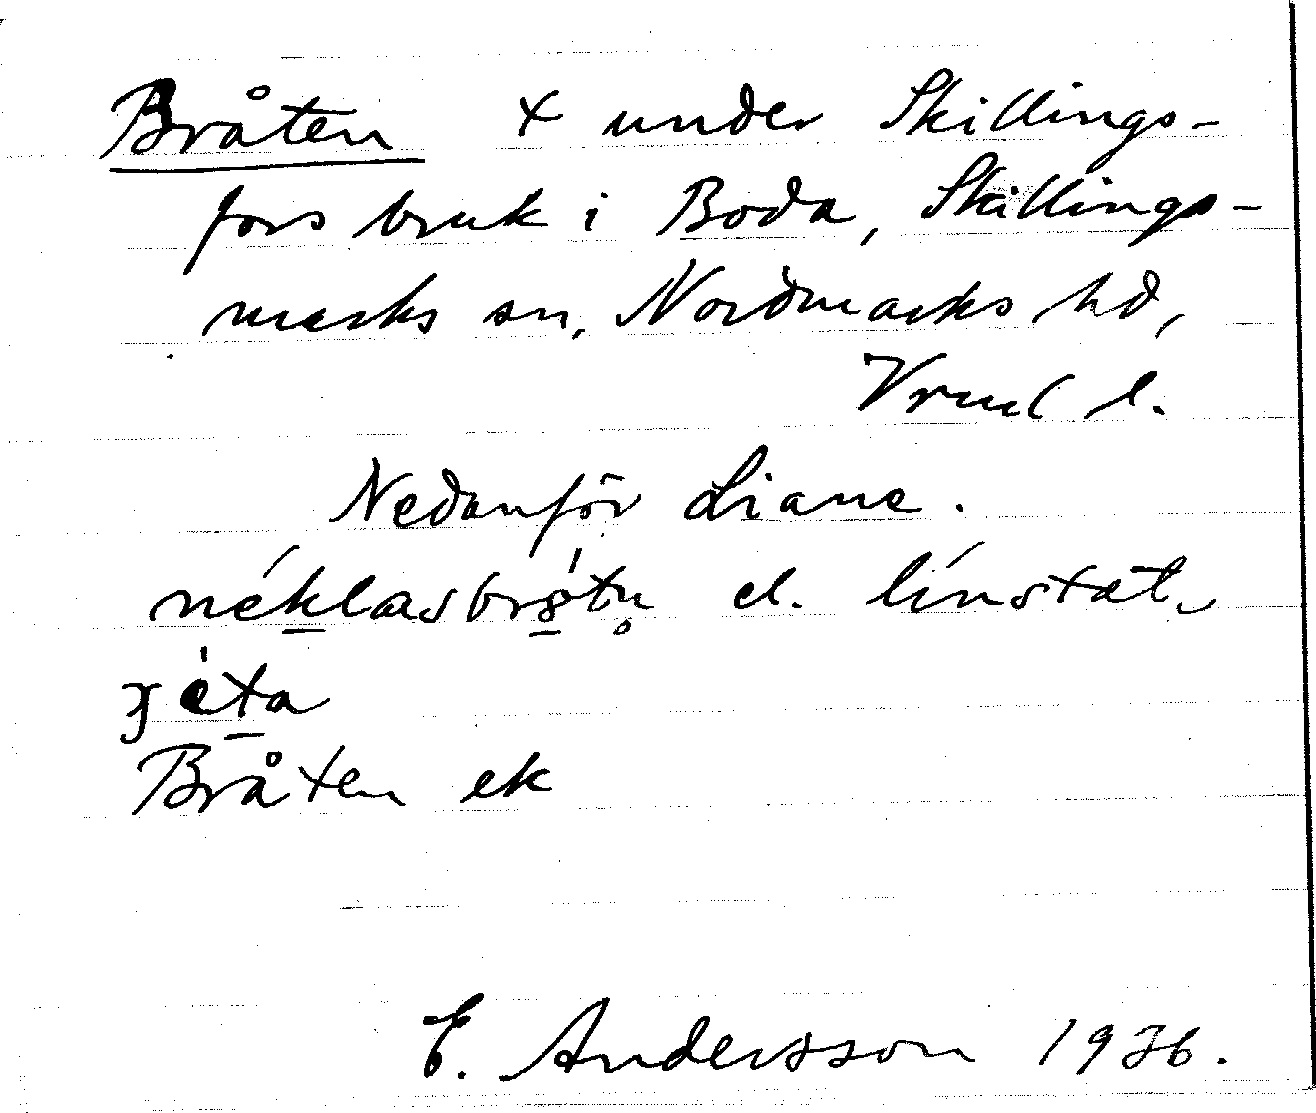 Bråten + under Skillings-
fors bruk i Boda, Skillings-
marks sn, Nordmarks hd,
Vrml l.
Nedanför Liane.
el.
Bråten ek
E. Andersson 1936.